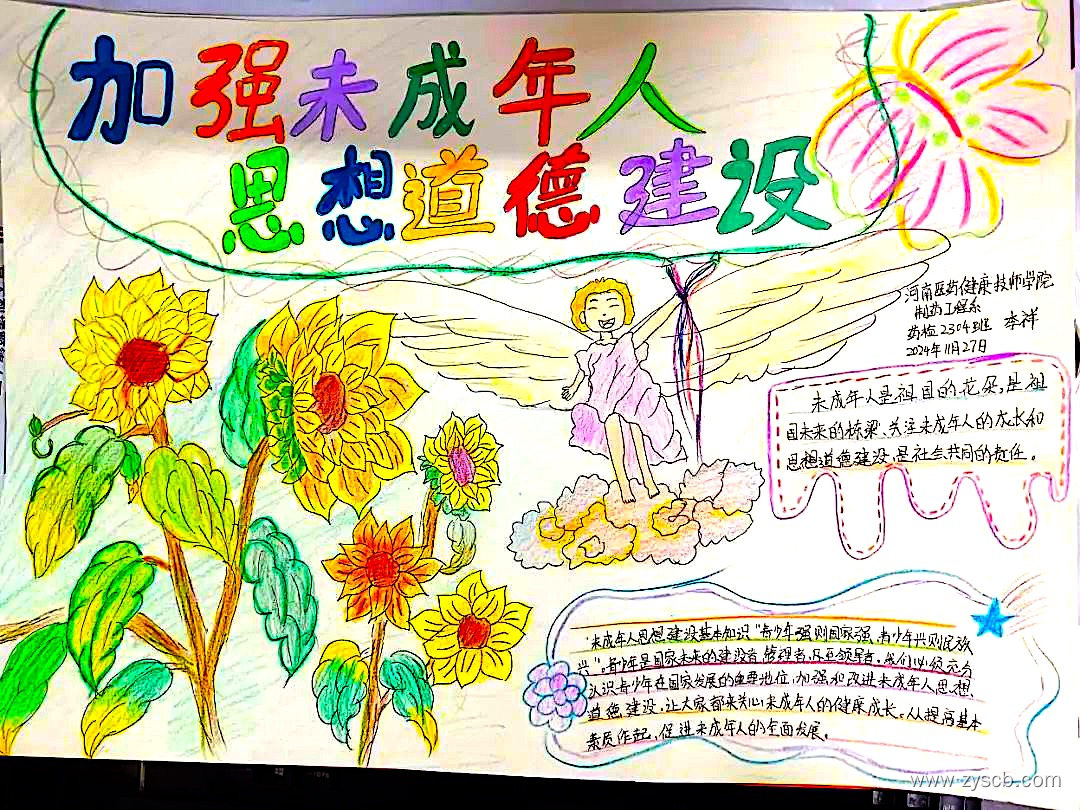 加强未成年人
思想道德建设
河南医药健康技师学院
制药工程系
药检2304班 李祥
2024年11月27日
未成年人是祖国的花朵,是祖
国未来的栋梁、关注未成年人的成长和
思想道德建设,是社会共同的责任。
"未成年人思想建设基本知识"青少年强则国家强,青少年兴则民族
兴"。青少年是国家未来的建设者、管理者,乃至领导者。我们必须充分
认识青少年在国家发展的重要地位,加强和改进未成年人思想,
道德建设,让大家都来关心未成年人的健康成长。从提高基本
素质作起,促进未成年人的全面发展。
www.zyscb.com